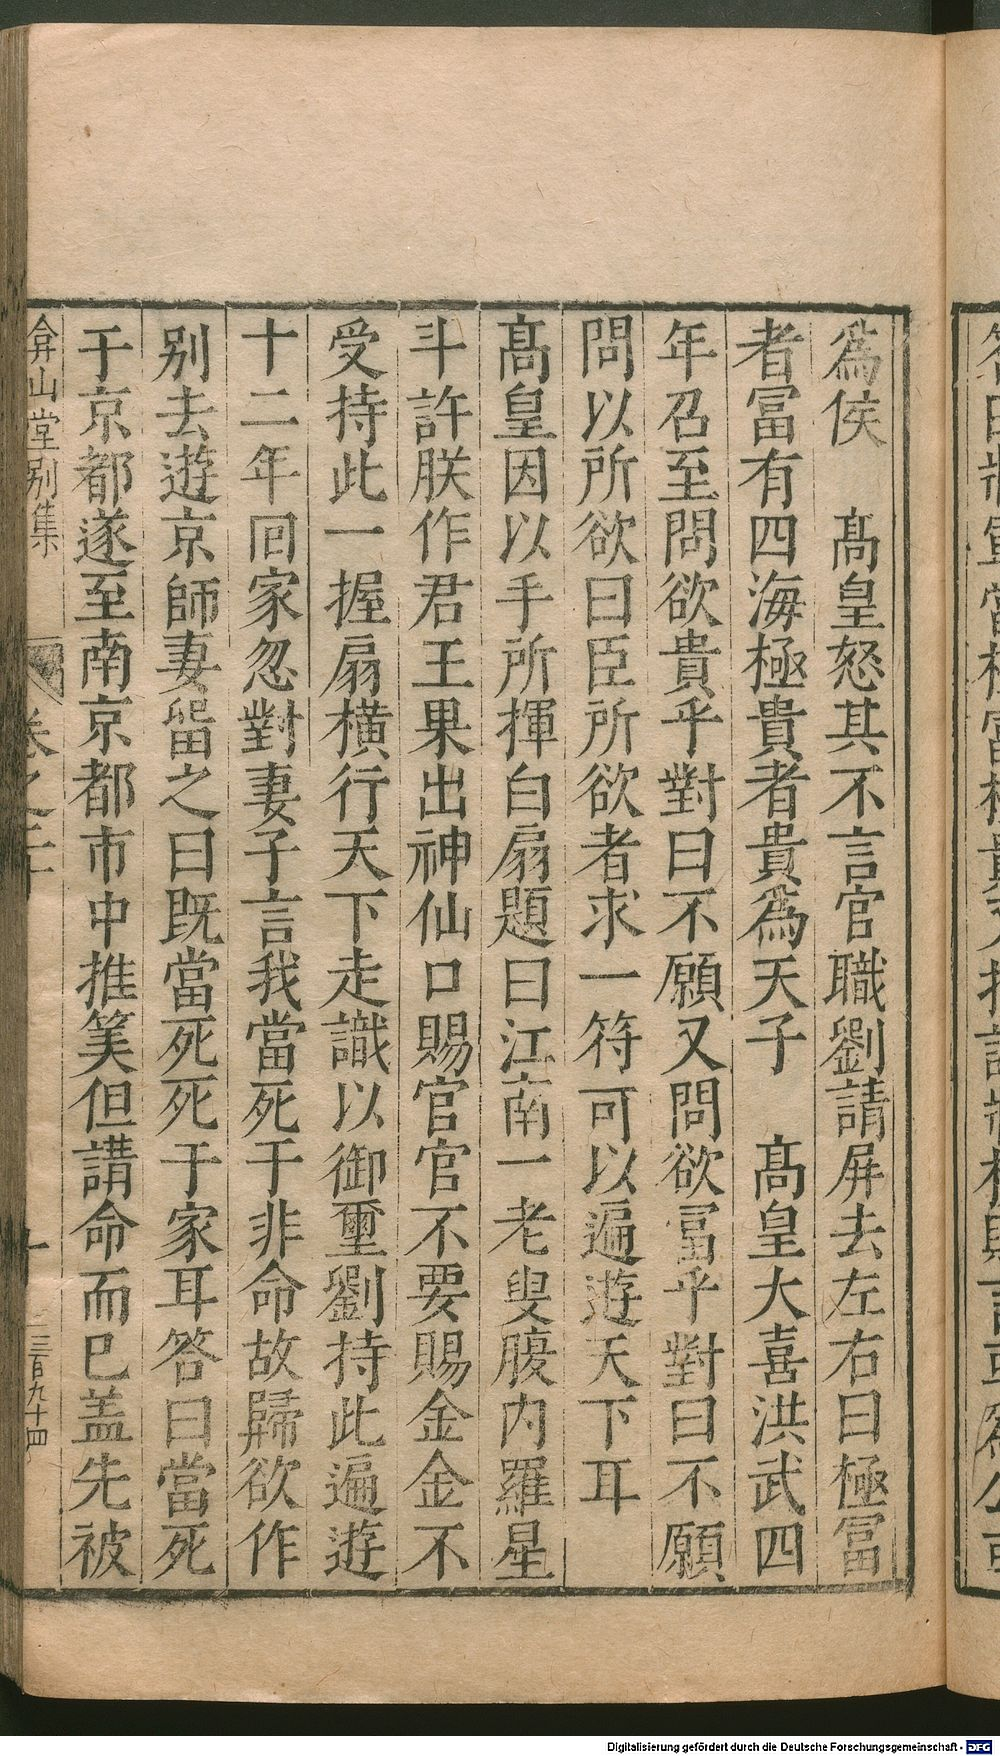 爲侯　髙皇怒其不言官職劉請屏去左右曰極冨
者冨有四海極貴者貴爲天子　髙皇大喜洪武四
年召至問欲貴乎對曰不願又問欲冨乎對曰不願
問以所欲曰臣所欲者求一符可以遍遊天下耳
髙皇因以手所揮白扇題曰江南一老叟腹内羅星
斗許朕作君王果出神仙口賜官官不要賜金金不
受持此一握扇橫行天下走識以御璽劉持此遍遊
十二年回家忽對妻子言我當死于非命故歸欲作
别去遊京師妻留之曰既當死死于家耳答曰當死
于京都遂至南京都市中推筭但講命而已盖先被
弇山堂别集
卷之二十
三百九十四
Digitalisierung gefördert durch die Deutsche Forschungsgemeinschaft - DFG